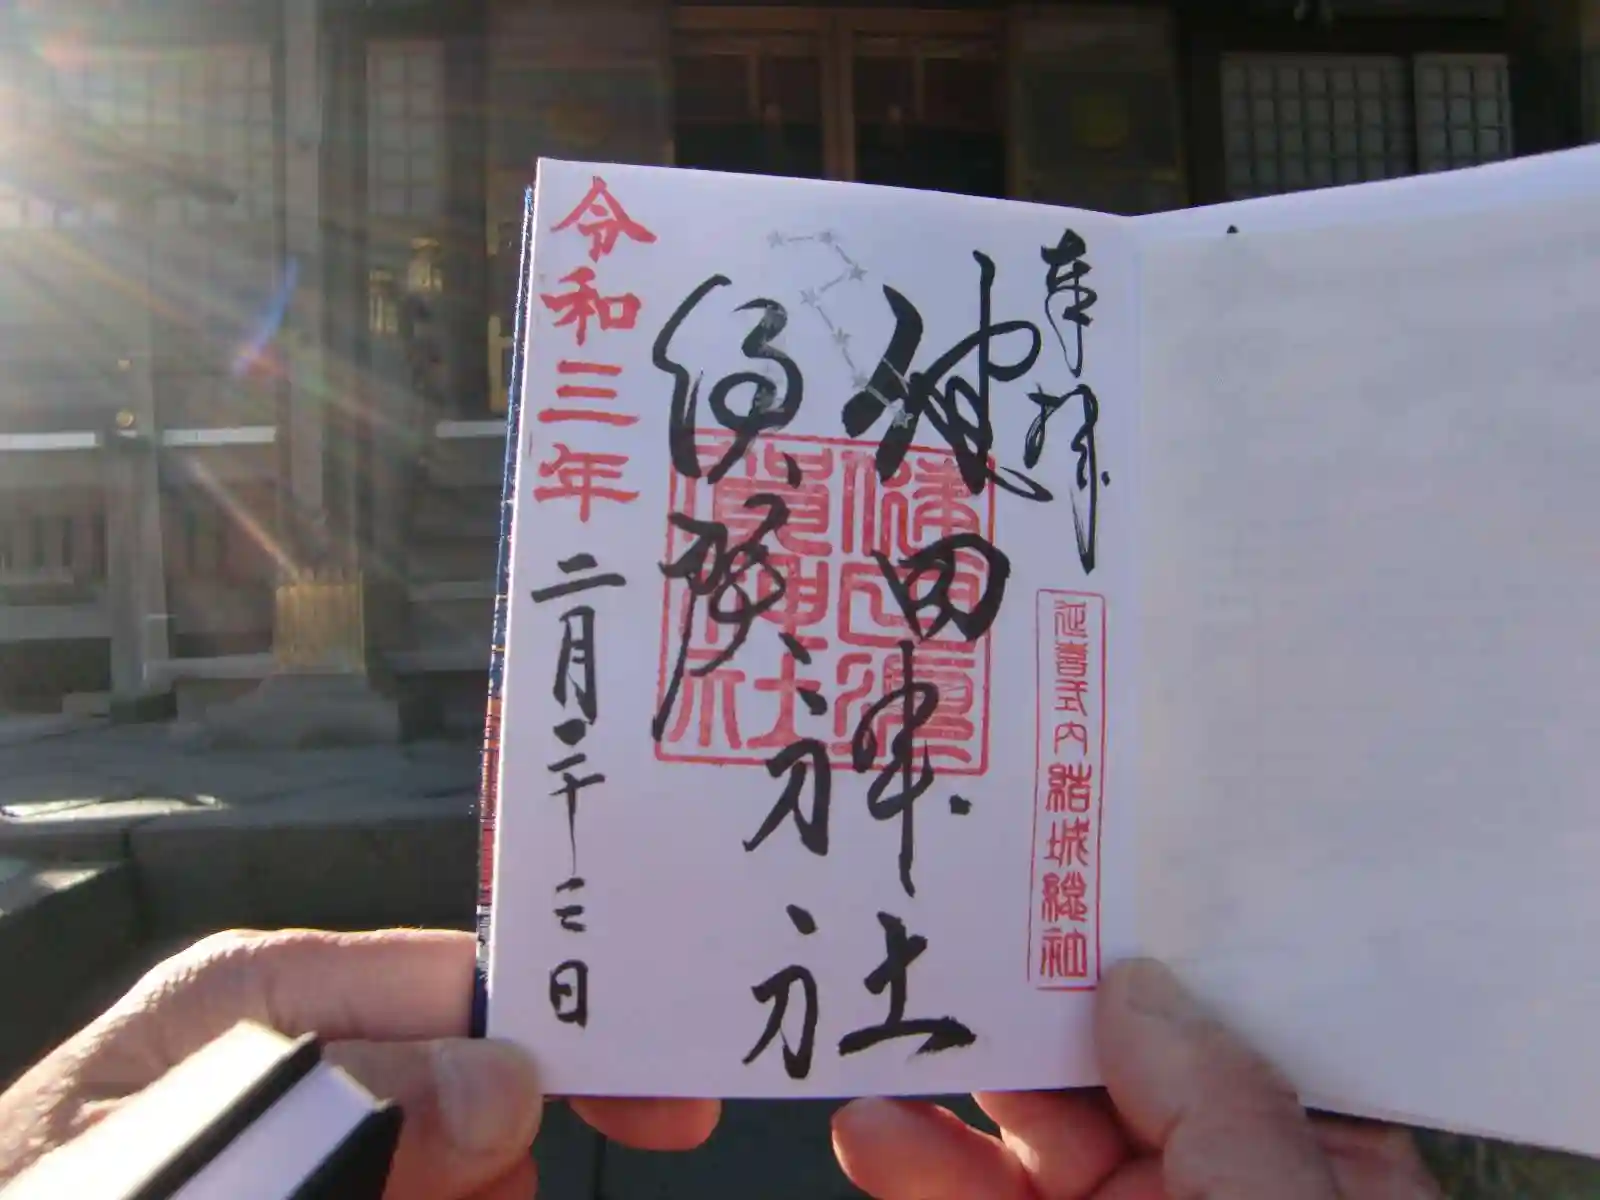 奉拝
延喜式内 結城総社
健田神社
須賀
健田須賀神社
令和三年二月二十三日